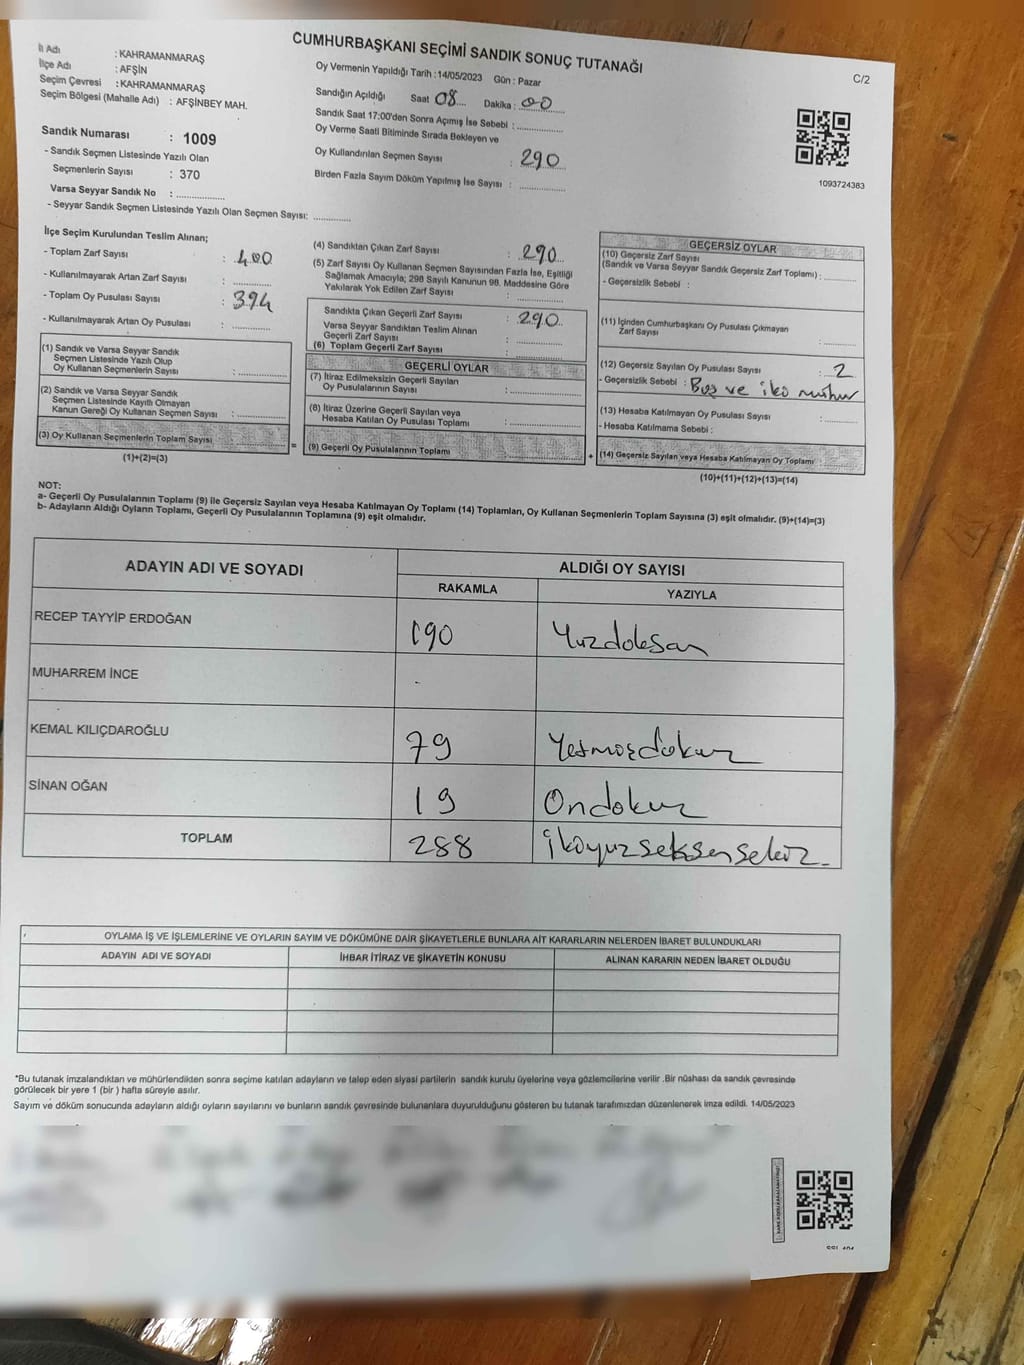 CUMHURBAŞKANI SEÇİMİ SANDIK SONUÇ TUTANAĞI
C/2
İl Adı : KAHRAMANMARAŞ
İlçe Adı : AFŞİN
Seçim Çevresi : KAHRAMANMARAŞ
Seçim Bölgesi (Mahalle Adı) : AFŞİNBEY MAH.
Sandık Numarası : 1009
- Sandık Seçmen Listesinde Yazılı Olan
Seçmenlerin Sayısı : 370
Varsa Seyyar Sandık No : ...............
- Seyyar Sandık Seçmen Listesinde Yazılı Olan Seçmen Sayısı: ............
Oy Vermenin Yapıldığı Tarih : 14/05/2023 Gün : Pazar
Sandığın Açıldığı Saat 08 Dakika : 00
Sandık Saat 17:00'den Sonra Açımış İse Sebebi : ...............
Oy Verme Saati Bitiminde Sırada Bekleyen ve
Oy Kullandırılan Seçmen Sayısı : 290
Birden Fazla Sayım Döküm Yapılmış İse Sayısı : ...............
1093724383
İlçe Seçim Kurulundan Teslim Alınan;
- Toplam Zarf Sayısı : 400
- Kullanılmayarak Artan Zarf Sayısı : ............
- Toplam Oy Pusulası Sayısı : 394
- Kullanılmayarak Artan Oy Pusulası : ............
(1) Sandık ve Varsa Seyyar Sandık
Seçmen Listesinde Yazılı Olup
Oy Kullanan Seçmenlerin Sayısı : ...............
(2) Sandık ve Varsa Seyyar Sandık
Seçmen Listesinde Kayıtlı Olmayan
Kanun Gereği Oy Kullanan Seçmen Sayısı : ...............
(3) Oy Kullanan Seçmenlerin Toplam Sayısı :
(1)+(2)=(3)
(4) Sandıktan Çıkan Zarf Sayısı : 290
(5) Zarf Sayısı Oy Kullanan Seçmen Sayısından Fazla İse, Eşitliği
Sağlamak Amacıyla; 298 Sayılı Kanunun 98. Maddesine Göre
Yakılarak Yok Edilen Zarf Sayısı : ...............
Sandıkta Çıkan Geçerli Zarf Sayısı : 290
Varsa Seyyar Sandıktan Teslim Alınan
Geçerli Zarf Sayısı : ...............
(6) Toplam Geçerli Zarf Sayısı : ...............
GEÇERLİ OYLAR
(7) İtiraz Edilmeksizin Geçerli Sayılan
Oy Pusulalarının Sayısı : ...............
(8) İtiraz Üzerine Geçerli Sayılan veya
Hesaba Katılan Oy Pusulası Toplamı : ...............
= (9) Geçerli Oy Pusulalarının Toplamı :
GEÇERSİZ OYLAR
(10) Geçersiz Zarf Sayısı
(Sandık ve Varsa Seyyar Sandık Geçersiz Zarf Toplamı) : ............
- Geçersizlik Sebebi :
(11) İçinden Cumhurbaşkanı Oy Pusulası Çıkmayan
Zarf Sayısı : ............
(12) Geçersiz Sayılan Oy Pusulası Sayısı : 2
- Geçersizlik Sebebi : Boş ve iki mühür
(13) Hesaba Katılmayan Oy Pusulası Sayısı : ............
- Hesaba Katılmama Sebebi :
+ (14) Geçersiz Sayılan veya Hesaba Katılmayan Oy Toplamı :
(10)+(11)+(12)+(13)=(14)
NOT:
a- Geçerli Oy Pusulalarının Toplamı (9) ile Geçersiz Sayılan veya Hesaba Katılmayan Oy Toplamı (14) Toplamları, Oy Kullanan Seçmenlerin Toplam Sayısına (3) eşit olmalıdır. (9)+(14)=(3)
b- Adayların Aldığı Oyların Toplamı, Geçerli Oy Pusulalarının Toplamına (9) eşit olmalıdır.
ADAYIN ADI VE SOYADI ALDIĞI OY SAYISI
RAKAMLA YAZIYLA
RECEP TAYYİP ERDOĞAN 190 Yüzdoksan
MUHARREM İNCE -
KEMAL KILIÇDAROĞLU 79 Yetmişdokuz
SİNAN OĞAN 19 Ondokuz
TOPLAM 288 ikiyüzseksensekiz
OYLAMA İŞ VE İŞLEMLERİNE VE OYLARIN SAYIM VE DÖKÜMÜNE DAİR ŞİKAYETLERLE BUNLARA AİT KARARLARIN NELERDEN İBARET BULUNDUKLARI
ADAYIN ADI VE SOYADI İHBAR İTİRAZ VE ŞİKAYETİN KONUSU ALINAN KARARIN NEDEN İBARET OLDUĞU
*Bu tutanak imzalandıktan ve mühürlendikten sonra seçime katılan adayların ve talep eden siyasi partilerin sandık kurulu üyelerine veya gözlemcilerine verilir .Bir nüshası da sandık çevresinde
görülecek bir yere 1 (bir ) hafta süreyle asılır.
Sayım ve döküm sonucunda adayların aldığı oyların sayılarını ve bunların sandık çevresinde bulunanlara duyurulduğunu gösteren bu tutanak tarafımızdan düzenlenerek imza edildi. 14/05/2023